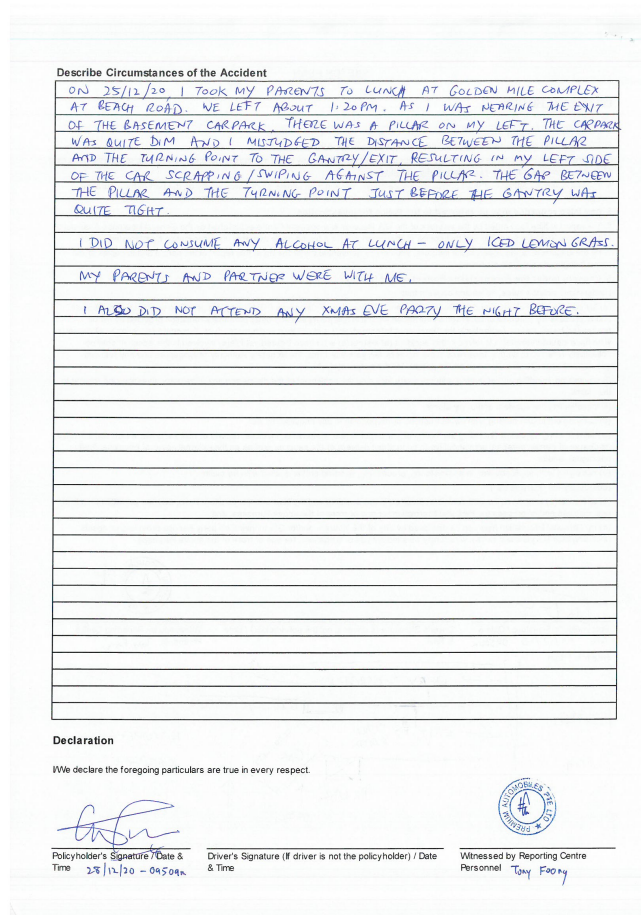 Describe Circumstances of the Accident
ON 25/12/20, I TOOK MY PARENTS TO LUNCH AT GOLDEN MILE COMPLEX
AT BEACH ROAD. WE LEFT ABOUT 1:20PM. AS I WAS NEARING THE EXIT
OF THE BASEMENT CARPARK, THERE WAS A PILLAR ON MY LEFT. THE CARPARK
WAS QUITE DIM AND I MISJUDGED THE DISTANCE BETWEEN THE PILLAR
AND THE TURNING POINT TO THE GANTRY/EXIT, RESULTING IN MY LEFT SIDE
OF THE CAR SCRAPPING/SWIPING AGAINST THE PILLAR. THE GAP BETWEEN
THE PILLAR AND THE TURNING POINT JUST BEFORE THE GANTRY WAS
QUITE TIGHT.
I DID NOT CONSUME ANY ALCOHOL AT LUNCH - ONLY ICED LEMON GRASS.
MY PARENTS AND PARTNER WERE WITH ME.
I ALSO DID NOT ATTEND ANY XMAS EVE PARTY THE NIGHT BEFORE.
Declaration
I/We declare the foregoing particulars are true in every respect.
PREMIUM AUTOMOBILES PTE LTD
Policyholder's Signature / Date &
Time 28/12/20 - 0950am
Driver's Signature (If driver is not the policyholder) / Date
& Time
Witnessed by Reporting Centre
Personnel Tony Foong